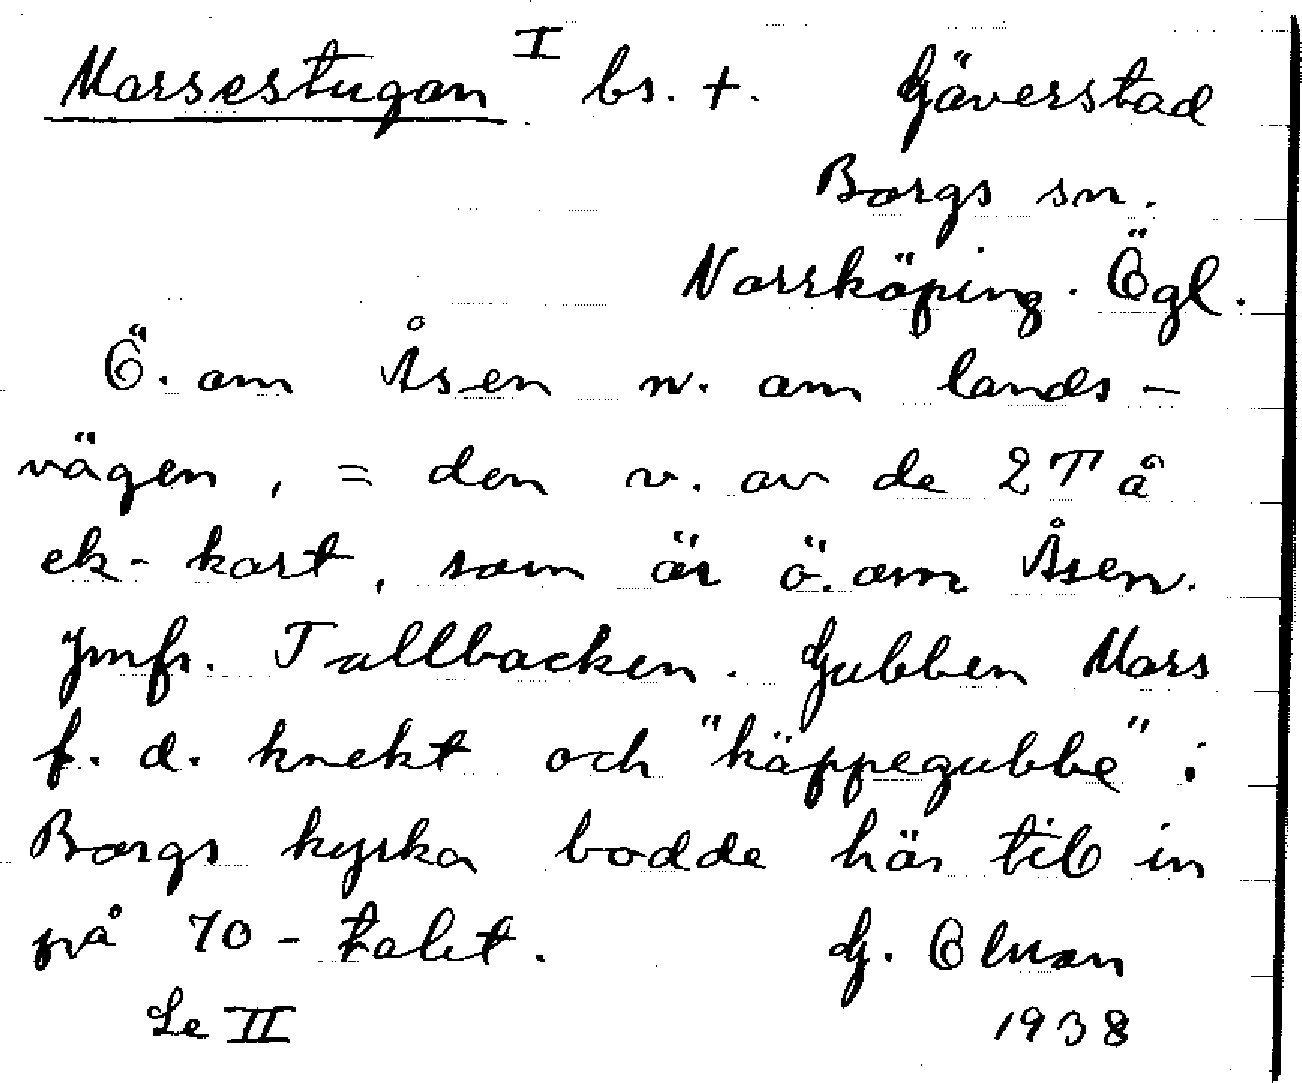 Marsestugan I bs. +. Gäverstad
Borgs sn.
Norrköping. Ögl.
Ö. om Åsen n. om lands-
vägen, = den v. av de 2 T å
ek-kart, som är ö. om Åsen.
Jmfr. Tallbacken. Gubben Mars
f. d. knekt och "käppegubbe" i
Borgs kyrka bodde här till in
på 70-talet. G. Elvan
Se II 1938